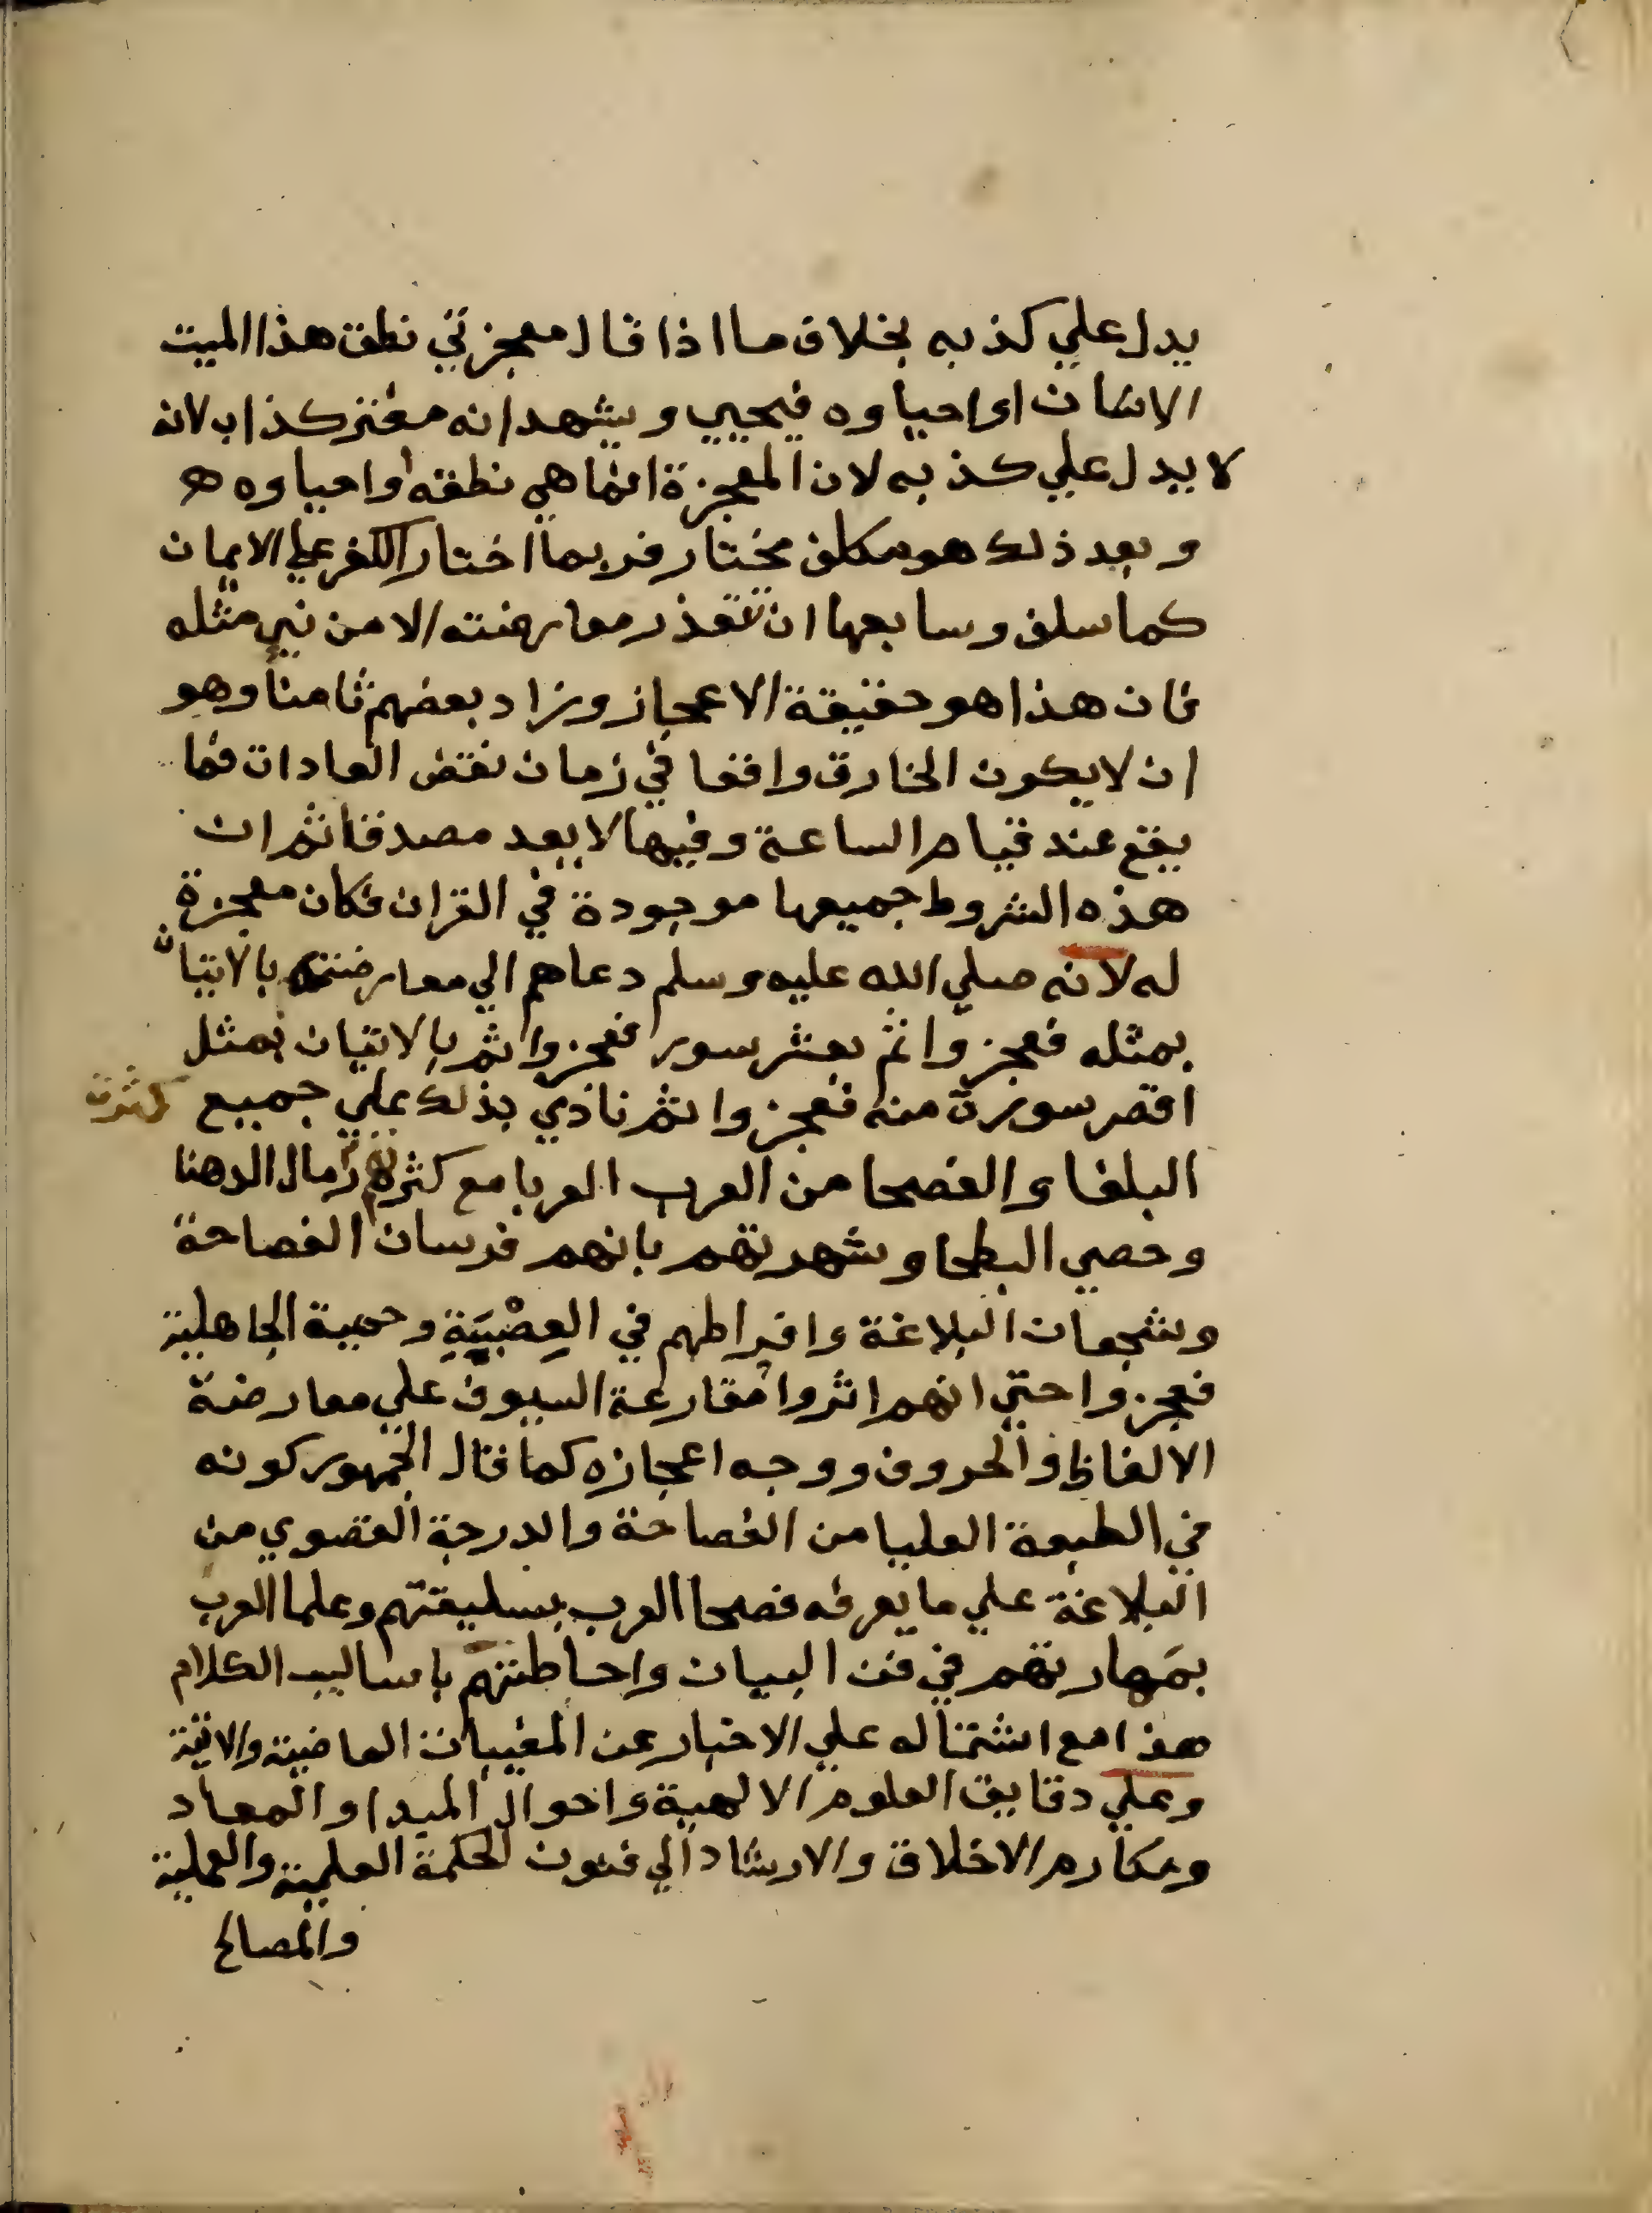 يدل علي كذبه بخلاف ما اذا قال معجزتي نطق هذا الميت
الانسان او احياوه فيحيي ويشهد انه مفتر كذاب لانه
لا يدل علي كذبه لان المعجزة انما هي نطقه او احياوه
وبعد ذلك هو مكلف مختار فربما اختار الكفر علي الايمان
كما سلف وسابعها ان تتعذر معارضته الا من نبي مثله
فان هذا هو حقيقة الاعجاز وزاد بعضهم ثامنا وهو
ان لا يكون الخارق واقعا في زمان نقض العادات فما
يقع عند قيام الساعة وفيها لا يعد مصدقا ثم ان
هذه الشروط جميعها موجودة في القران فكان معجزة
له لانه صلي الله عليه وسلم دعاهم الي معارضته بالاتيان
بمثله فعجزوا ثم بعشر سور فعجزوا ثم بالاتيان بمثل
اقصر سورة منه فعجزوا ثم نادي بذلك علي جميع
البلغا والفصحا من العرب العربا مع كثرتهم رمال الدهنا
وحصي البطحا وشهرتهم بانهم فرسان الفصاحة
وشجعان البلاغة وافراطهم في العصبية وحمية الجاهلية
فعجزوا حتي انهم اثروا مقارعة السيوف علي معارضة
الالفاظ والحروف ووجه اعجازه كما قال الجمهور كونه
في الطبعة العليا من الفصاحة والدرجة القصوي من
البلاغة علي ما يعرفه فصحا العرب بسليقتهم وعلما العرب
بمهارتهم في فن البيان واحاطتهم باساليب الكلام
هذا مع اشتماله علي الاخبار عن المغيبات الماضية والاتية
وعلي دقايق العلوم الالهية واحوال المبدا والمعاد
ومكارم الاخلاق والارشاد الي فنون الحكمة العلمية والعملية
والمصالح